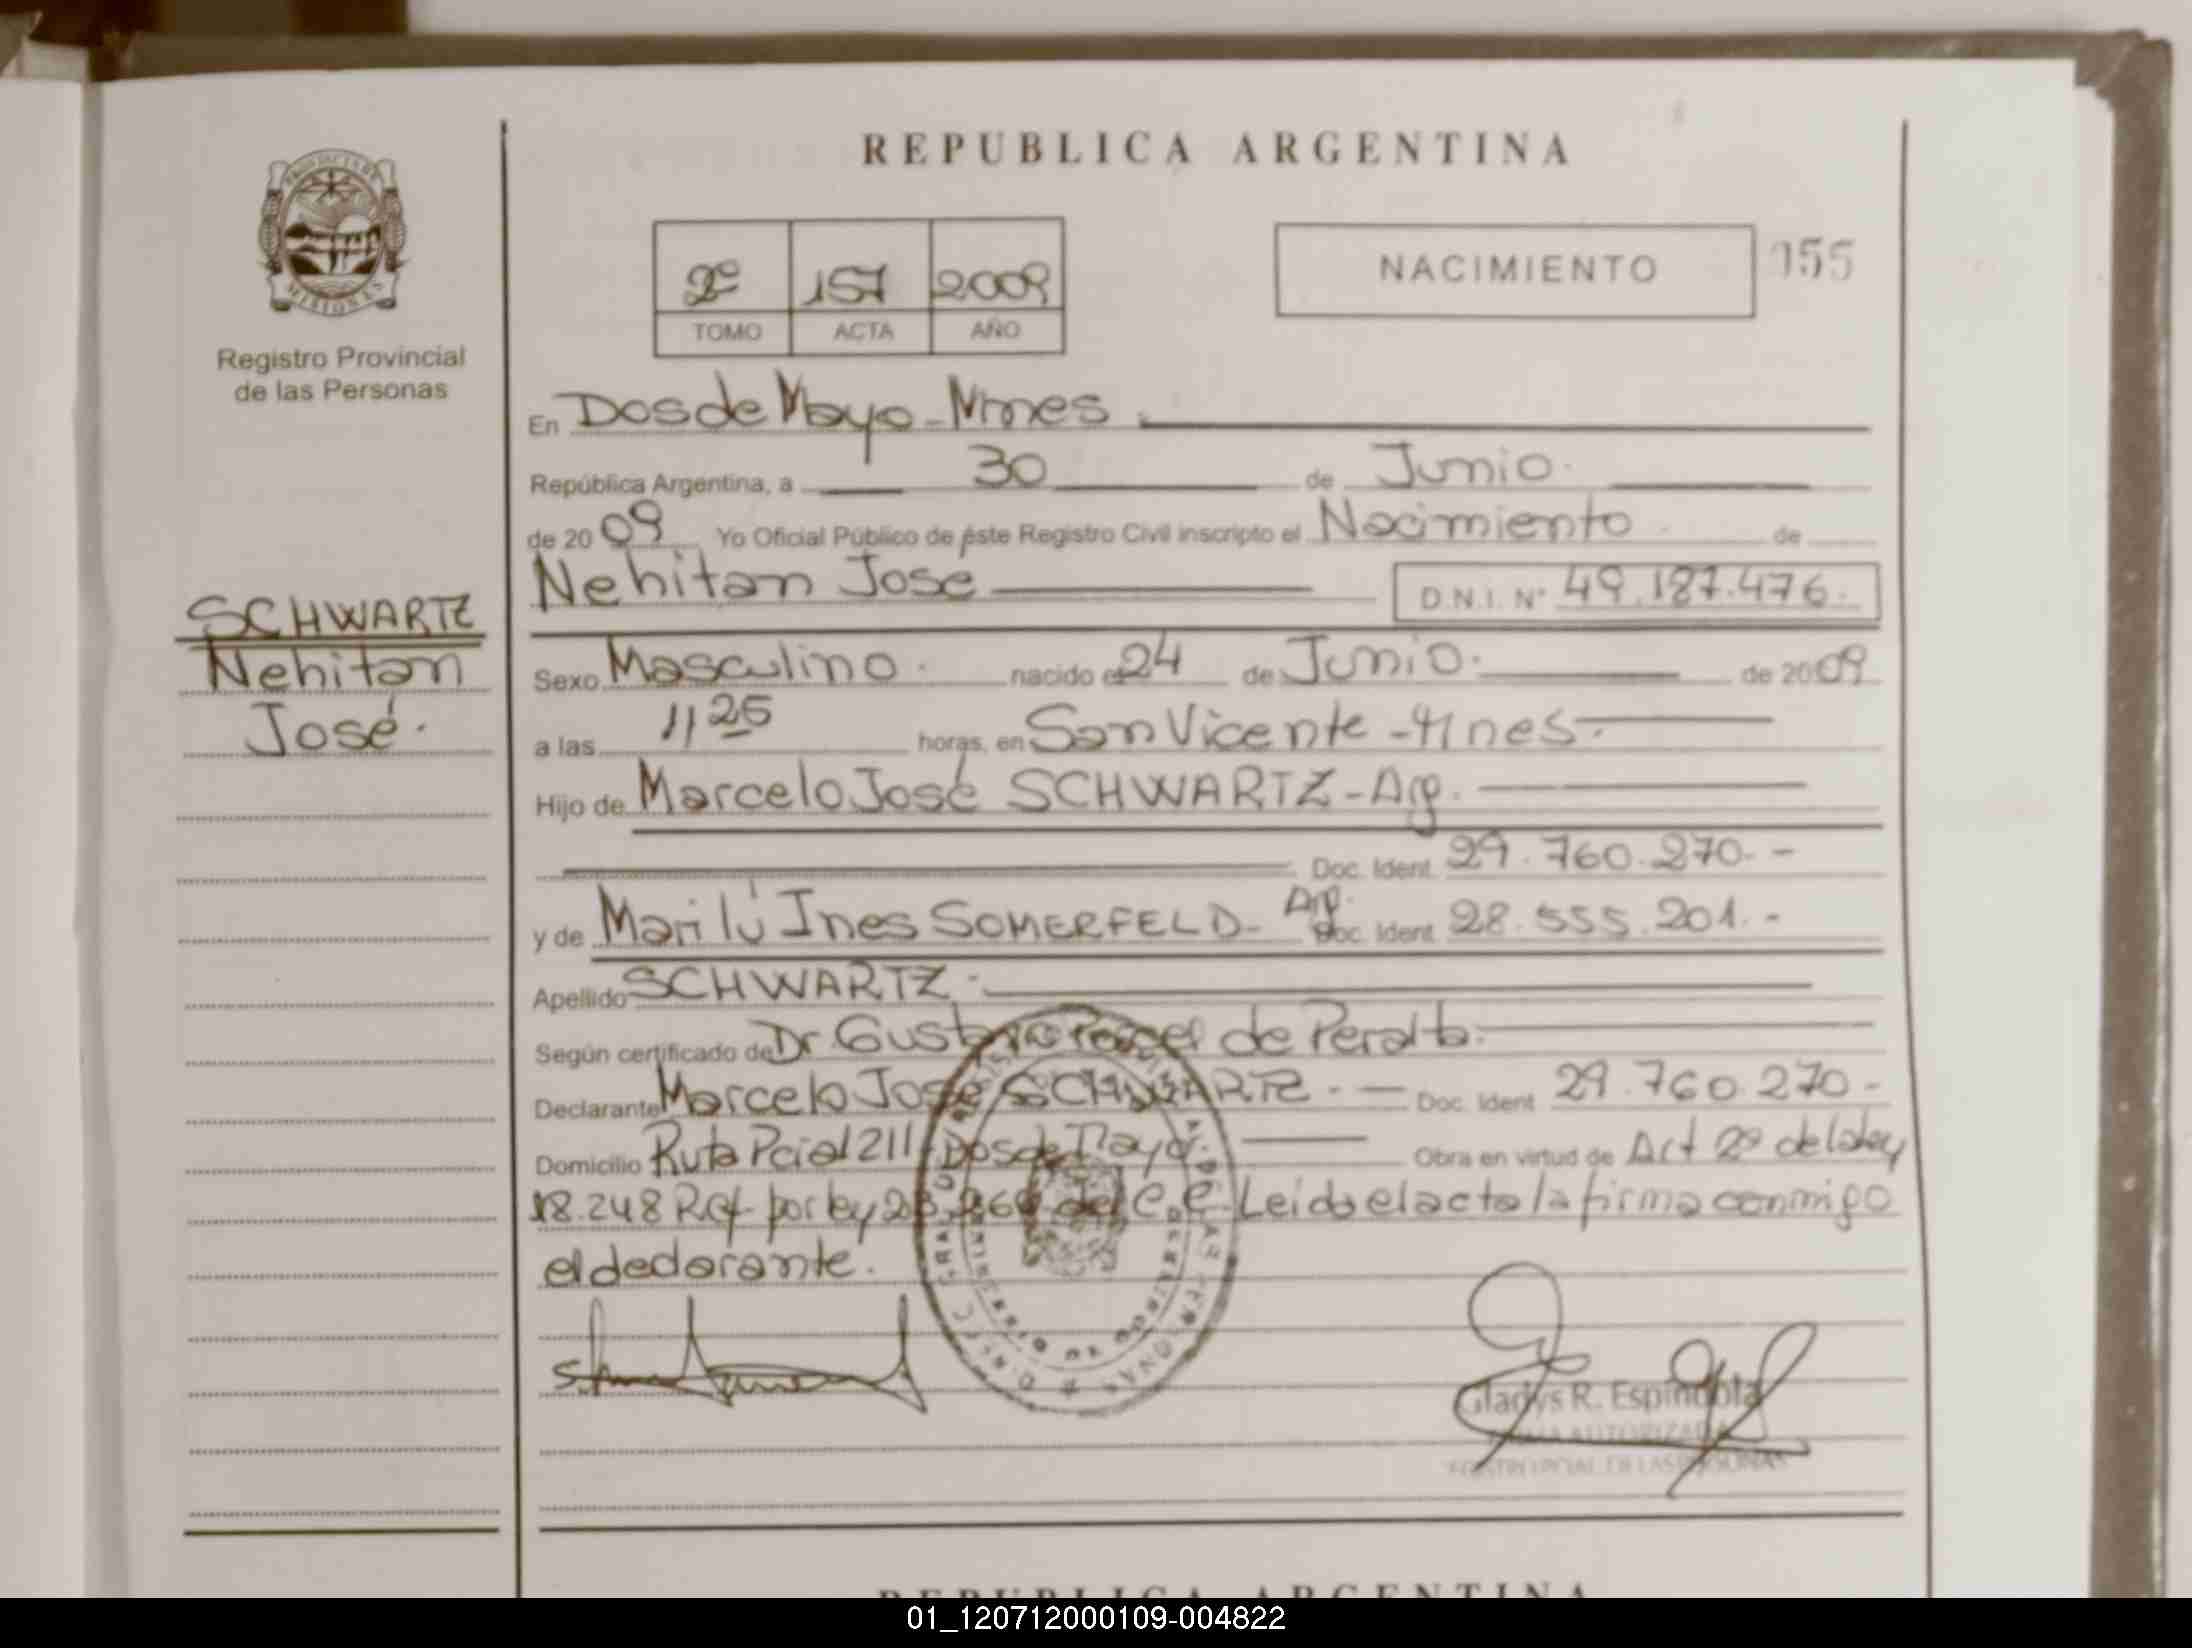 REPUBLICA ARGENTINA
PROVINCIA DE MISIONES
Registro Provincial
de las Personas
2º 157 2009
TOMO ACTA AÑO
NACIMIENTO
155
En Dos de Mayo - Mnes
República Argentina, a 30 de Junio.
de 2009 Yo Oficial Público de éste Registro Civil inscripto el Nacimiento de
Nehitan José D.N.I. Nº 49.187.476.
SCHWARTZ
Nehitan
José.
Sexo Masculino. nacido el 24 de Junio. de 2009
a las 11 25 horas, en San Vicente - Mnes.
Hijo de Marcelo José SCHWARTZ - Arg.
Doc. Ident. 29.760.270.-
y de Marilú Ines SOMERFELD - Arg. Doc. Ident. 28.555.201.-
Apellido SCHWARTZ.
Según certificado de Dr Gustavo de Peralta.
Declarante Marcelo José SCHWARTZ.- Doc. Ident. 29.760.270-
Domicilio Ruta Pcial 211 Dos de Mayo. Obra en virtud de Art 2º de la ley
18.248 Ref. por ley del C.C. Leida el acta la firma conmigo
el declarante.
Gladys R. Espindola
FIRMA AUTORIZADA
REGISTRO PCIAL. DE LAS PERSONAS
REPUBLICA ARGENTINA
01_120712000109-004822